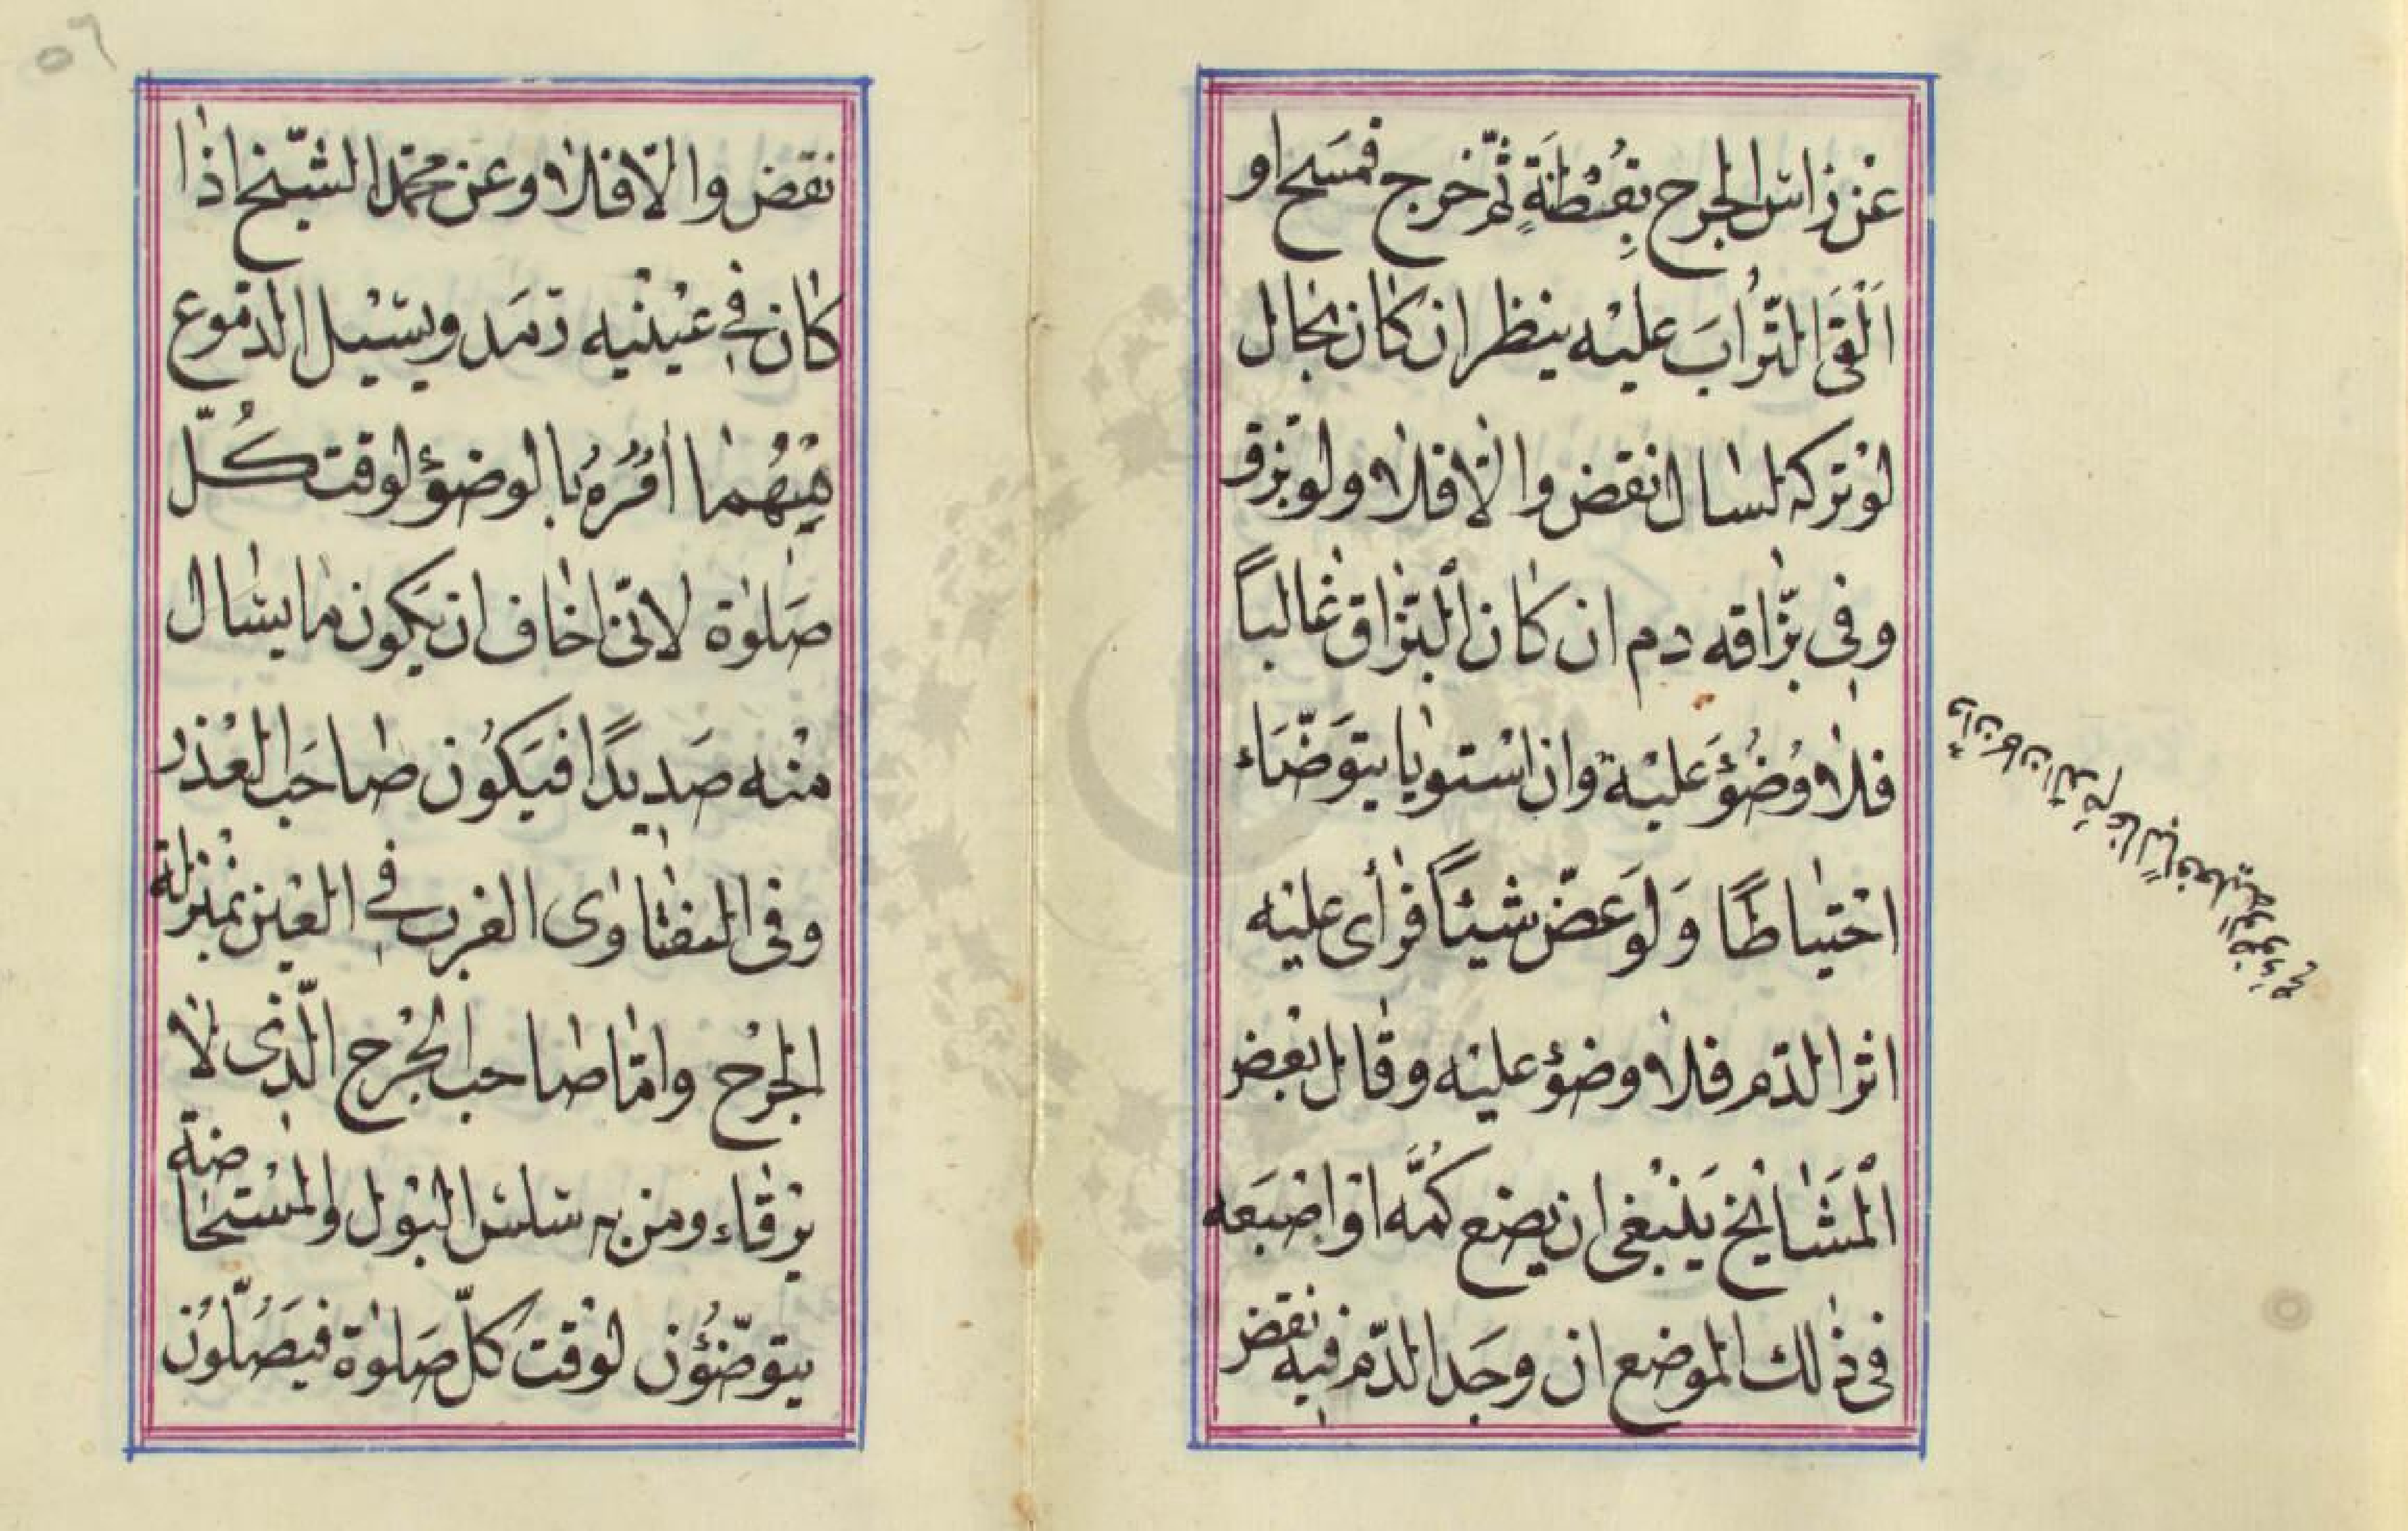 عَنْ رَاسِ الجرح بِقُطْنَةٍ ثمّ خرج فمَسَح او
اَلْقَى التُّرابَ عليْه ينظر ان كان بحال
لوْ تركه لسال انقض والّا فلا ولو بزق
وفى بزاقه دم ان كان الْبزاق غالباً
فلا وُضُؤَ عليْه وان اسْتويا يتوَضّاء
احْتياطًا وَلَوعَضّ شيئاً فرأى عليْه
اثر الدّم فلا وضؤ عليْه وقال بعْض
الْمَشَايْخ يَنْبْغى ان يضع كُمَّه اوْ اصْبَعه
فى ذٰلك الموضع ان وجَد الدّم فيه نقض
وان كان الدم غالباً فعليه الوضوء صح
٥٦
نقض والّا فلا وعن محمّد الشّيْخ اذا
كان في عيْنيْه رمَد ويسيْل الدّموع
مِنْهُما اٰمُرُهُ بالوضؤ لوقت كُلّ
صَلوٰة لانّى اخاف ان يَكون ما يسال
منْه صَديدًا فيَكُون صاحَب العُذْر
وفى الفتاوى الغرب في العيْن بمنْزلة
الجرْح وامّا صاحب الجُرْح الّذى لا
يرْقاء ومن به سلس البوْل والمسْتحاضة
يتوضّئُوْن لوْقت كلّ صَلوٰة فيَصَلّوْن